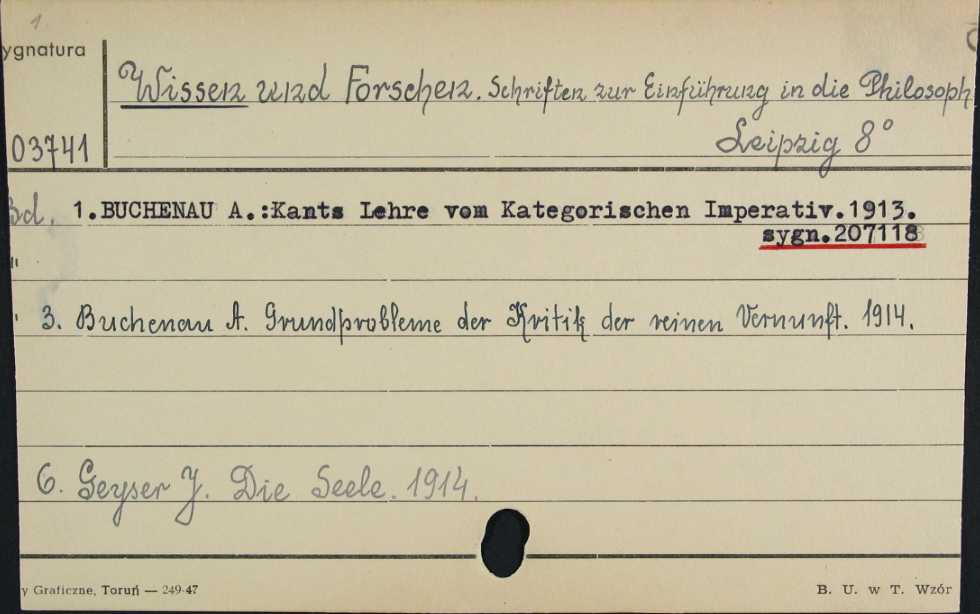 1
ygnatura
Wissen und Forschen. Schriften zur Einführung in die Philosoph
03741
Leipzig 8°
Bd. 1.BUCHENAU A.:Kants Lehre vom Kategorischen Imperativ.1913.
sygn.207118
"
" 3. Buchenau A. Grundprobleme der Kritik der reinen Vernunft. 1914.
6. Geyser J. Die Seele. 1914.
y Graficzne, Toruń — 249-47
B. U. w T. Wzór